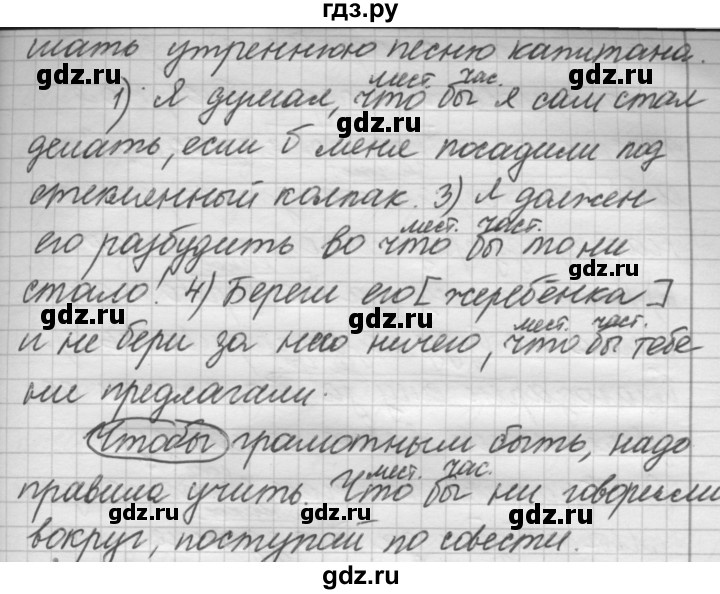 гдз.ру
шать утреннюю песню капитана.
gdz.ru gdz.ru
мест. час.
1) Я думал, что бы я сам стал
gdz.ru
делать, если б меня посадили под
gdz.ru gdz.ru
стеклянный колпак. 3) Я должен
мест. част.
его разбудить во что бы то ни
gdz.ru
стало! 4) Береги его [жеребёнка]
gdz.ru gdz.ru
мест. част.
и не бери за него ничего, что бы тебе
ни предлагали.
gdz.ru gdz.ru
Чтобы грамотным быть, надо
мест. час.
правила учить. Что бы ни говорили
gdz.ru gdz.ru gdz.ru
вокруг, поступай по совести.
gdz.ru